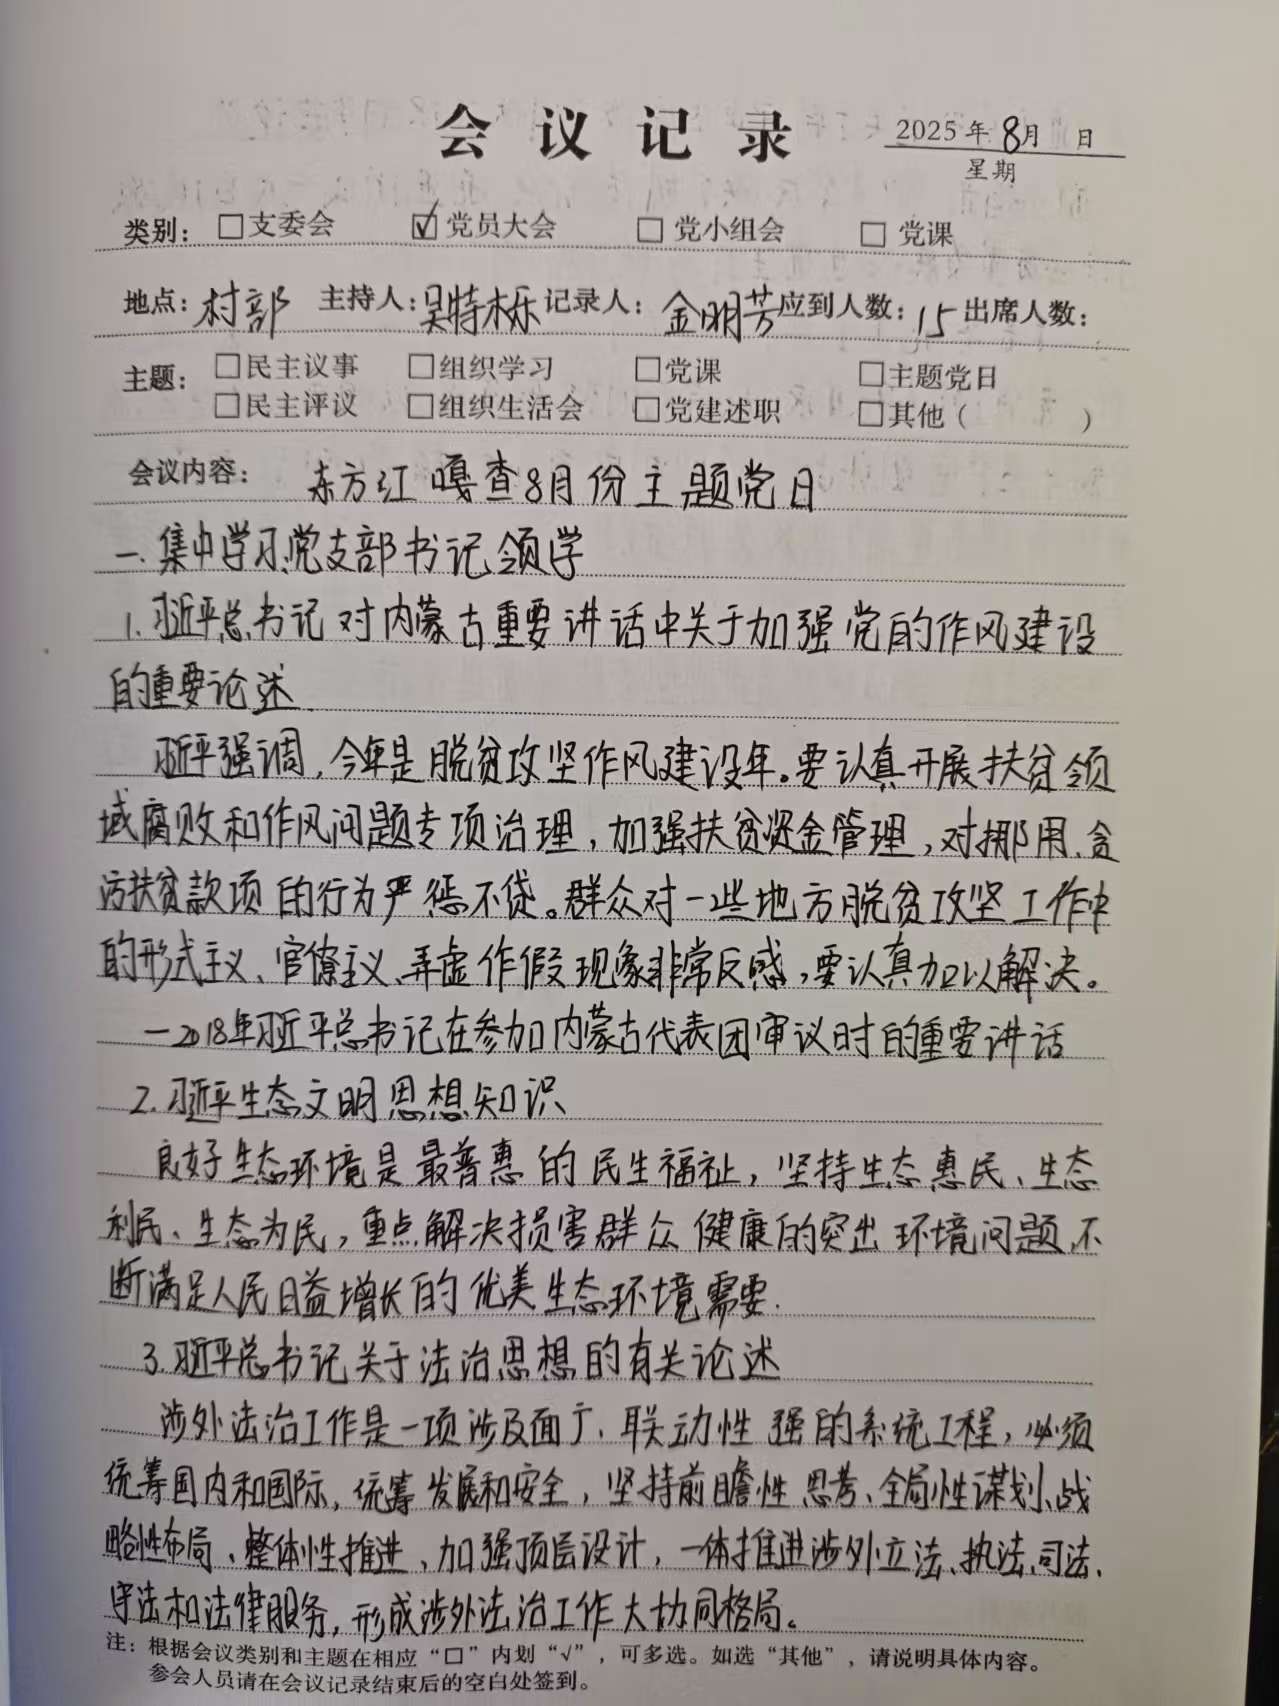 会议记录
2025年8月 日
星期
类别：□支委会 ☑党员大会 □党小组会 □党课
地点：村部 主持人：吴特木乐 记录人：金明芳 应到人数：15 出席人数：
主题：□民主议事 □组织学习 □党课 □主题党日
□民主评议 □组织生活会 □党建述职 □其他（ ）
会议内容： 东方红嘎查8月份主题党日
一.集中学习,党支部书记领学
1.习近平总书记对内蒙古重要讲话中关于加强党的作风建设
的重要论述.
习近平强调,今年是脱贫攻坚作风建设年。要认真开展扶贫领
域腐败和作风问题专项治理，加强扶贫资金管理，对挪用、贪
污扶贫款项的行为严惩不贷。群众对一些地方脱贫攻坚工作中
的形式主义、官僚主义、弄虚作假现象非常反感，要认真加以解决。
一2018年习近平总书记在参加内蒙古代表团审议时的重要讲话
2.习近平生态文明思想知识
良好生态环境是最普惠的民生福祉，坚持生态惠民、生态
利民、生态为民，重点解决损害群众健康的突出环境问题,不
断满足人民日益增长的优美生态环境需要.
3.习近平总书记关于法治思想的有关论述
涉外法治工作是一项涉及面广、联动性强的系统工程，必须
统筹国内和国际，统筹发展和安全，坚持前瞻性思考、全局性谋划、战
略性布局、整体性推进，加强顶层设计，一体推进涉外立法、执法、司法、
守法和法律服务，形成涉外法治工作大协同格局。
注：根据会议类别和主题在相应“□”内划“√”，可多选。如选“其他”，请说明具体内容。
参会人员请在会议记录结束后的空白处签到。